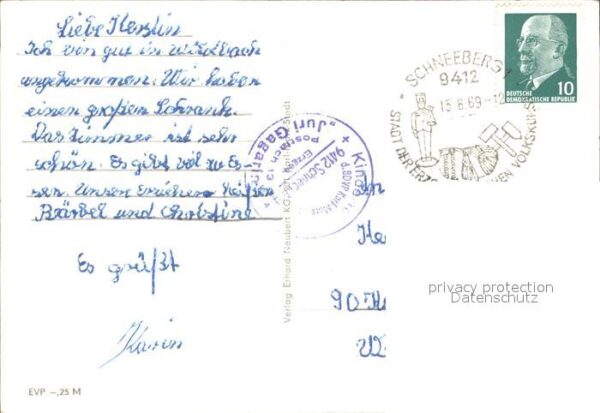 Liebe Kerstin
Ich bin gut in Wildbach
angekommen. Wir haben
einen großen Schrank.
Das Zimmer ist sehr
schön. Es gibt viel zu Es-
sen. Unsere Erzieher heißen
Bärbel und Christine
Es grüßt
Karin
EVP –,25 M
Verlag Erhard Neubert KG, Karl-Marx-Stadt
"Juri Gagarin"
Postfach 13
9412 Schnee
SCHNEEBERG 1
9412
15.6.69-12
STADT IHRER
VOLKSKUNST
10
DEUTSCHE
DEMOKRATISCHE REPUBLIK
90
privacy protection
Datenschutz